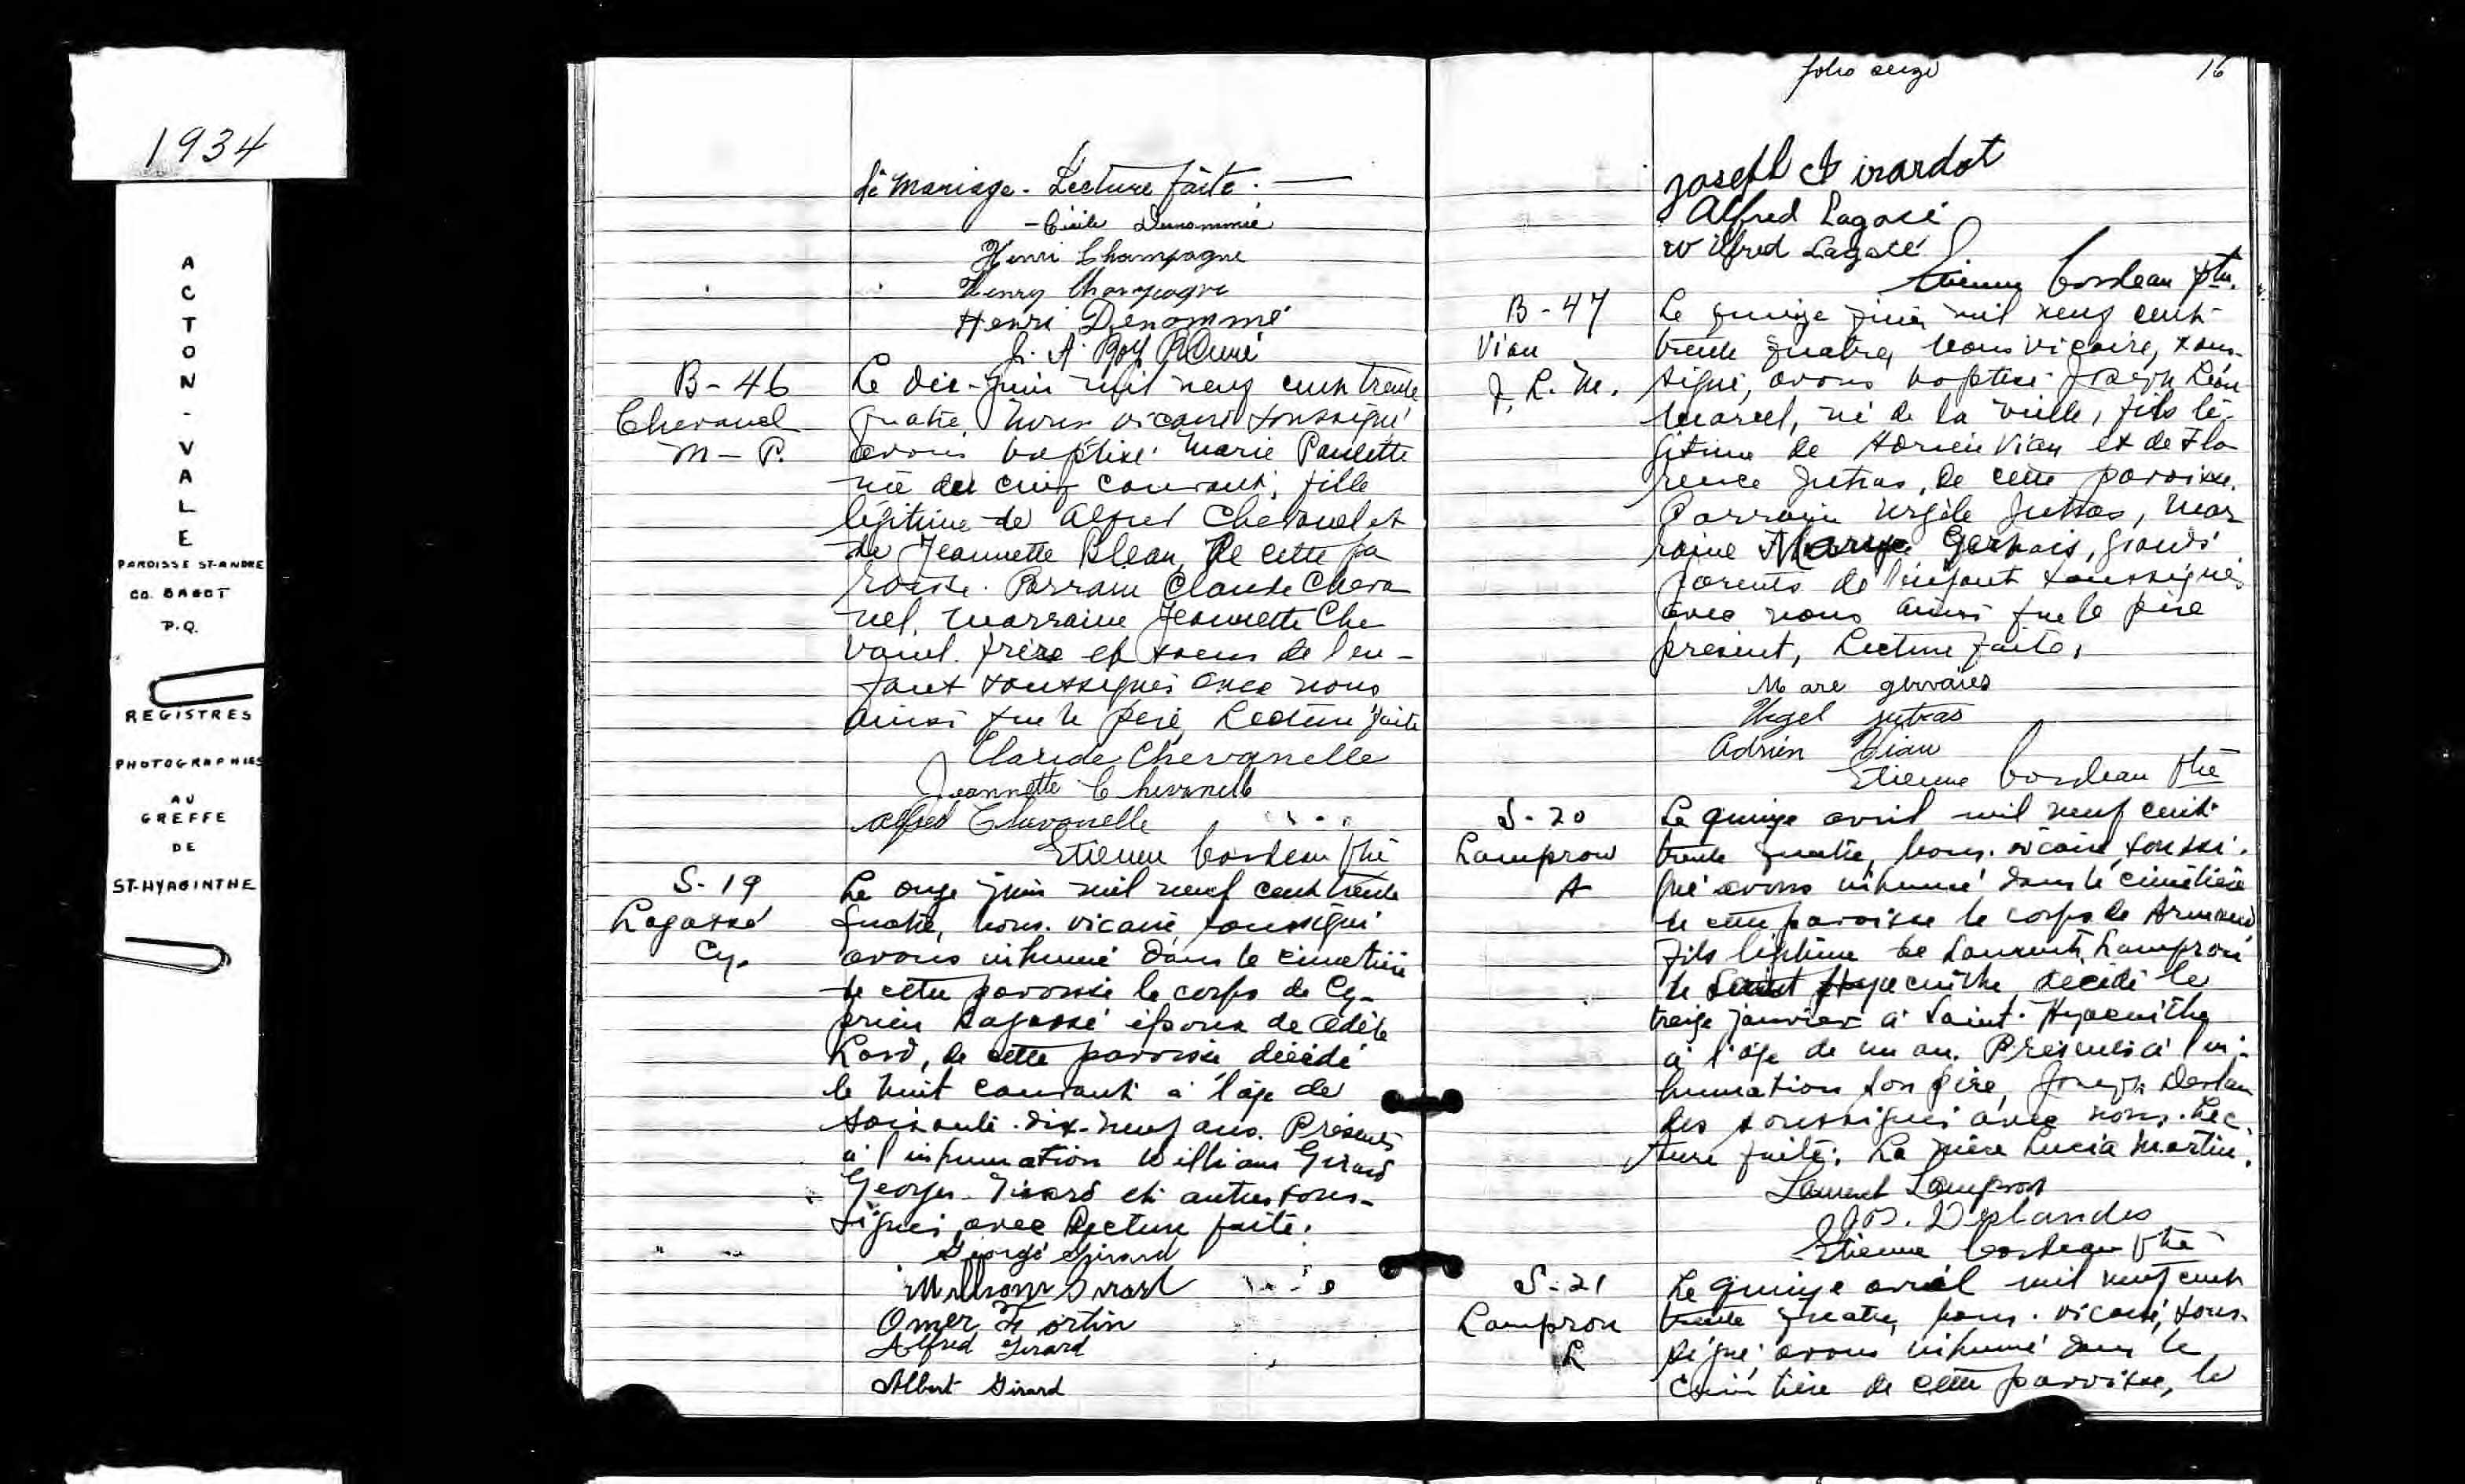 1934
ACTON-VALE
PAROISSE ST-ANDRE
CO. BAGOT
P.Q.
REGISTRES
PHOTOGRAPHIES
AU
GREFFE
DE
ST-HYACINTHE
de Mariage. Lecture faite. —
- Cécile Dénommée
Henri Champagne
Henry Champagne
Henri Dénommé
J. A. Roy Ptre Curé
B-46
Chevanel
M-P.
Le dix-juin mil neuf cent trente
quatre, nous vicaire soussigné
avons baptisé Marie Paulette
née du cinq courant, fille
légitime de Alfred Chevanel et
de Jeannette Bleau, de cette pa
roisse. Parrain Claude Cheva
nel, marraine Jeannette Che
vanel. frère et soeur de l'en-
fant soussignés avec nous
ainsi que le père, Lecture faite
Claude Chevanelle
Jeannette Chevanelle
Alfred Chevanelle
Etienne Cordeau ptre
S-19
Lagassé
Cy.
Le onze juin mil neuf cent trente
quatre, nous. vicaire soussigné
avons inhumé dans le cimetière
de cette paroisse le corps de Cy-
prien Lagassé époux de Adèle
Lord, de cette paroisse décédé
le huit courant à l'âge de
soixante-dix-neuf ans. Présents
à l'inhumation William Girard
Georges Girard et autres sous-
signés avec Lecture faite.
George Girard
William Girard
Omer Fortin
Alfred Girard
Albert Girard
folio seize 16
Joseph Girardot
Alfred Lagacé
Wilfred Lagacé
Etienne Cordeau ptre.
B-47
Viau
J. L. M.
Le quinze juin mil neuf cent-
trente quatre, nous vicaire, sous-
signé, avons baptisé Joseph Léon
Marcel, né de la veille, fils lé-
gitime de Adrien Viau et de Flo
rence Jutras, de cette paroisse.
Parrain Urgèle Jutras, mar
raine Marye Gervais, grands
parents de l'enfant soussignés
avec nous ainsi que le père
présent, Lecture faite,
Mare gervaies
Urgel jutras
Adrien Viau
Etienne Cordeau ptre
S-20
Lampron
A
Le quinze avril mil neuf cent
trente quatre, nous. vicaire, soussi-
gné avons inhumé dans le cimetière
de cette paroisse le corps de Armand
fils légitime de Laurent Lampron
de Saint Hyacinthe décédé le
treize janvier à Saint-Hyacinthe
à l'âge de un an. Présents à l'in-
humation son père, Joseph Deslan
des soussignés avec nous. Lec-
ture faite. La mère Lucia Martin.
Laurent Lampron
Jos. Deslandes
Etienne Cordeau ptre
S-21
Lampron
L
Le quinze avril mil neuf cent
trente quatre, nous. vicaire, sous-
signé, avons inhumé dans le
cimetière de cette paroisse, le